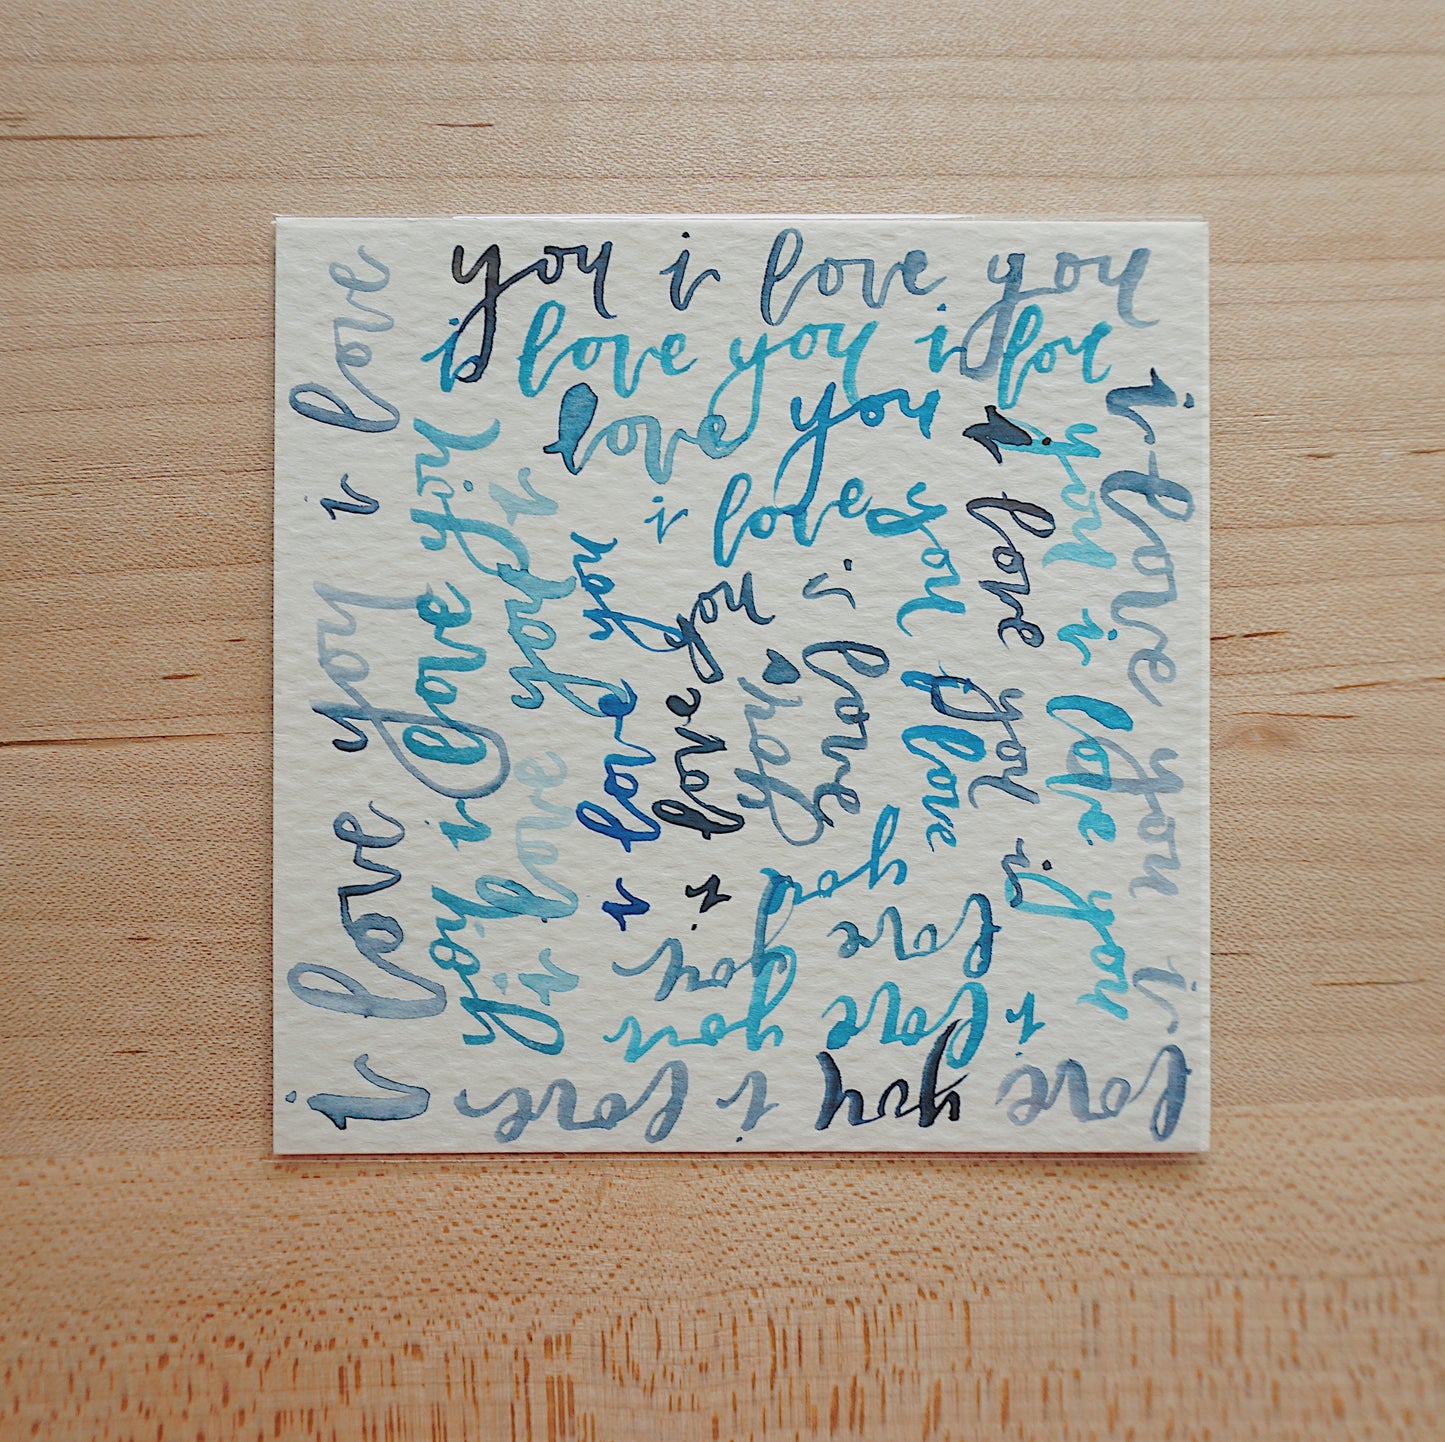 i love you i love
you i love you
i love you i
love you i love
you i love you
i love you i love
you i love you
i love you i
i love you i
love you
i love you i
love you
i love you
i love
you i love
you
i love you
i love
you